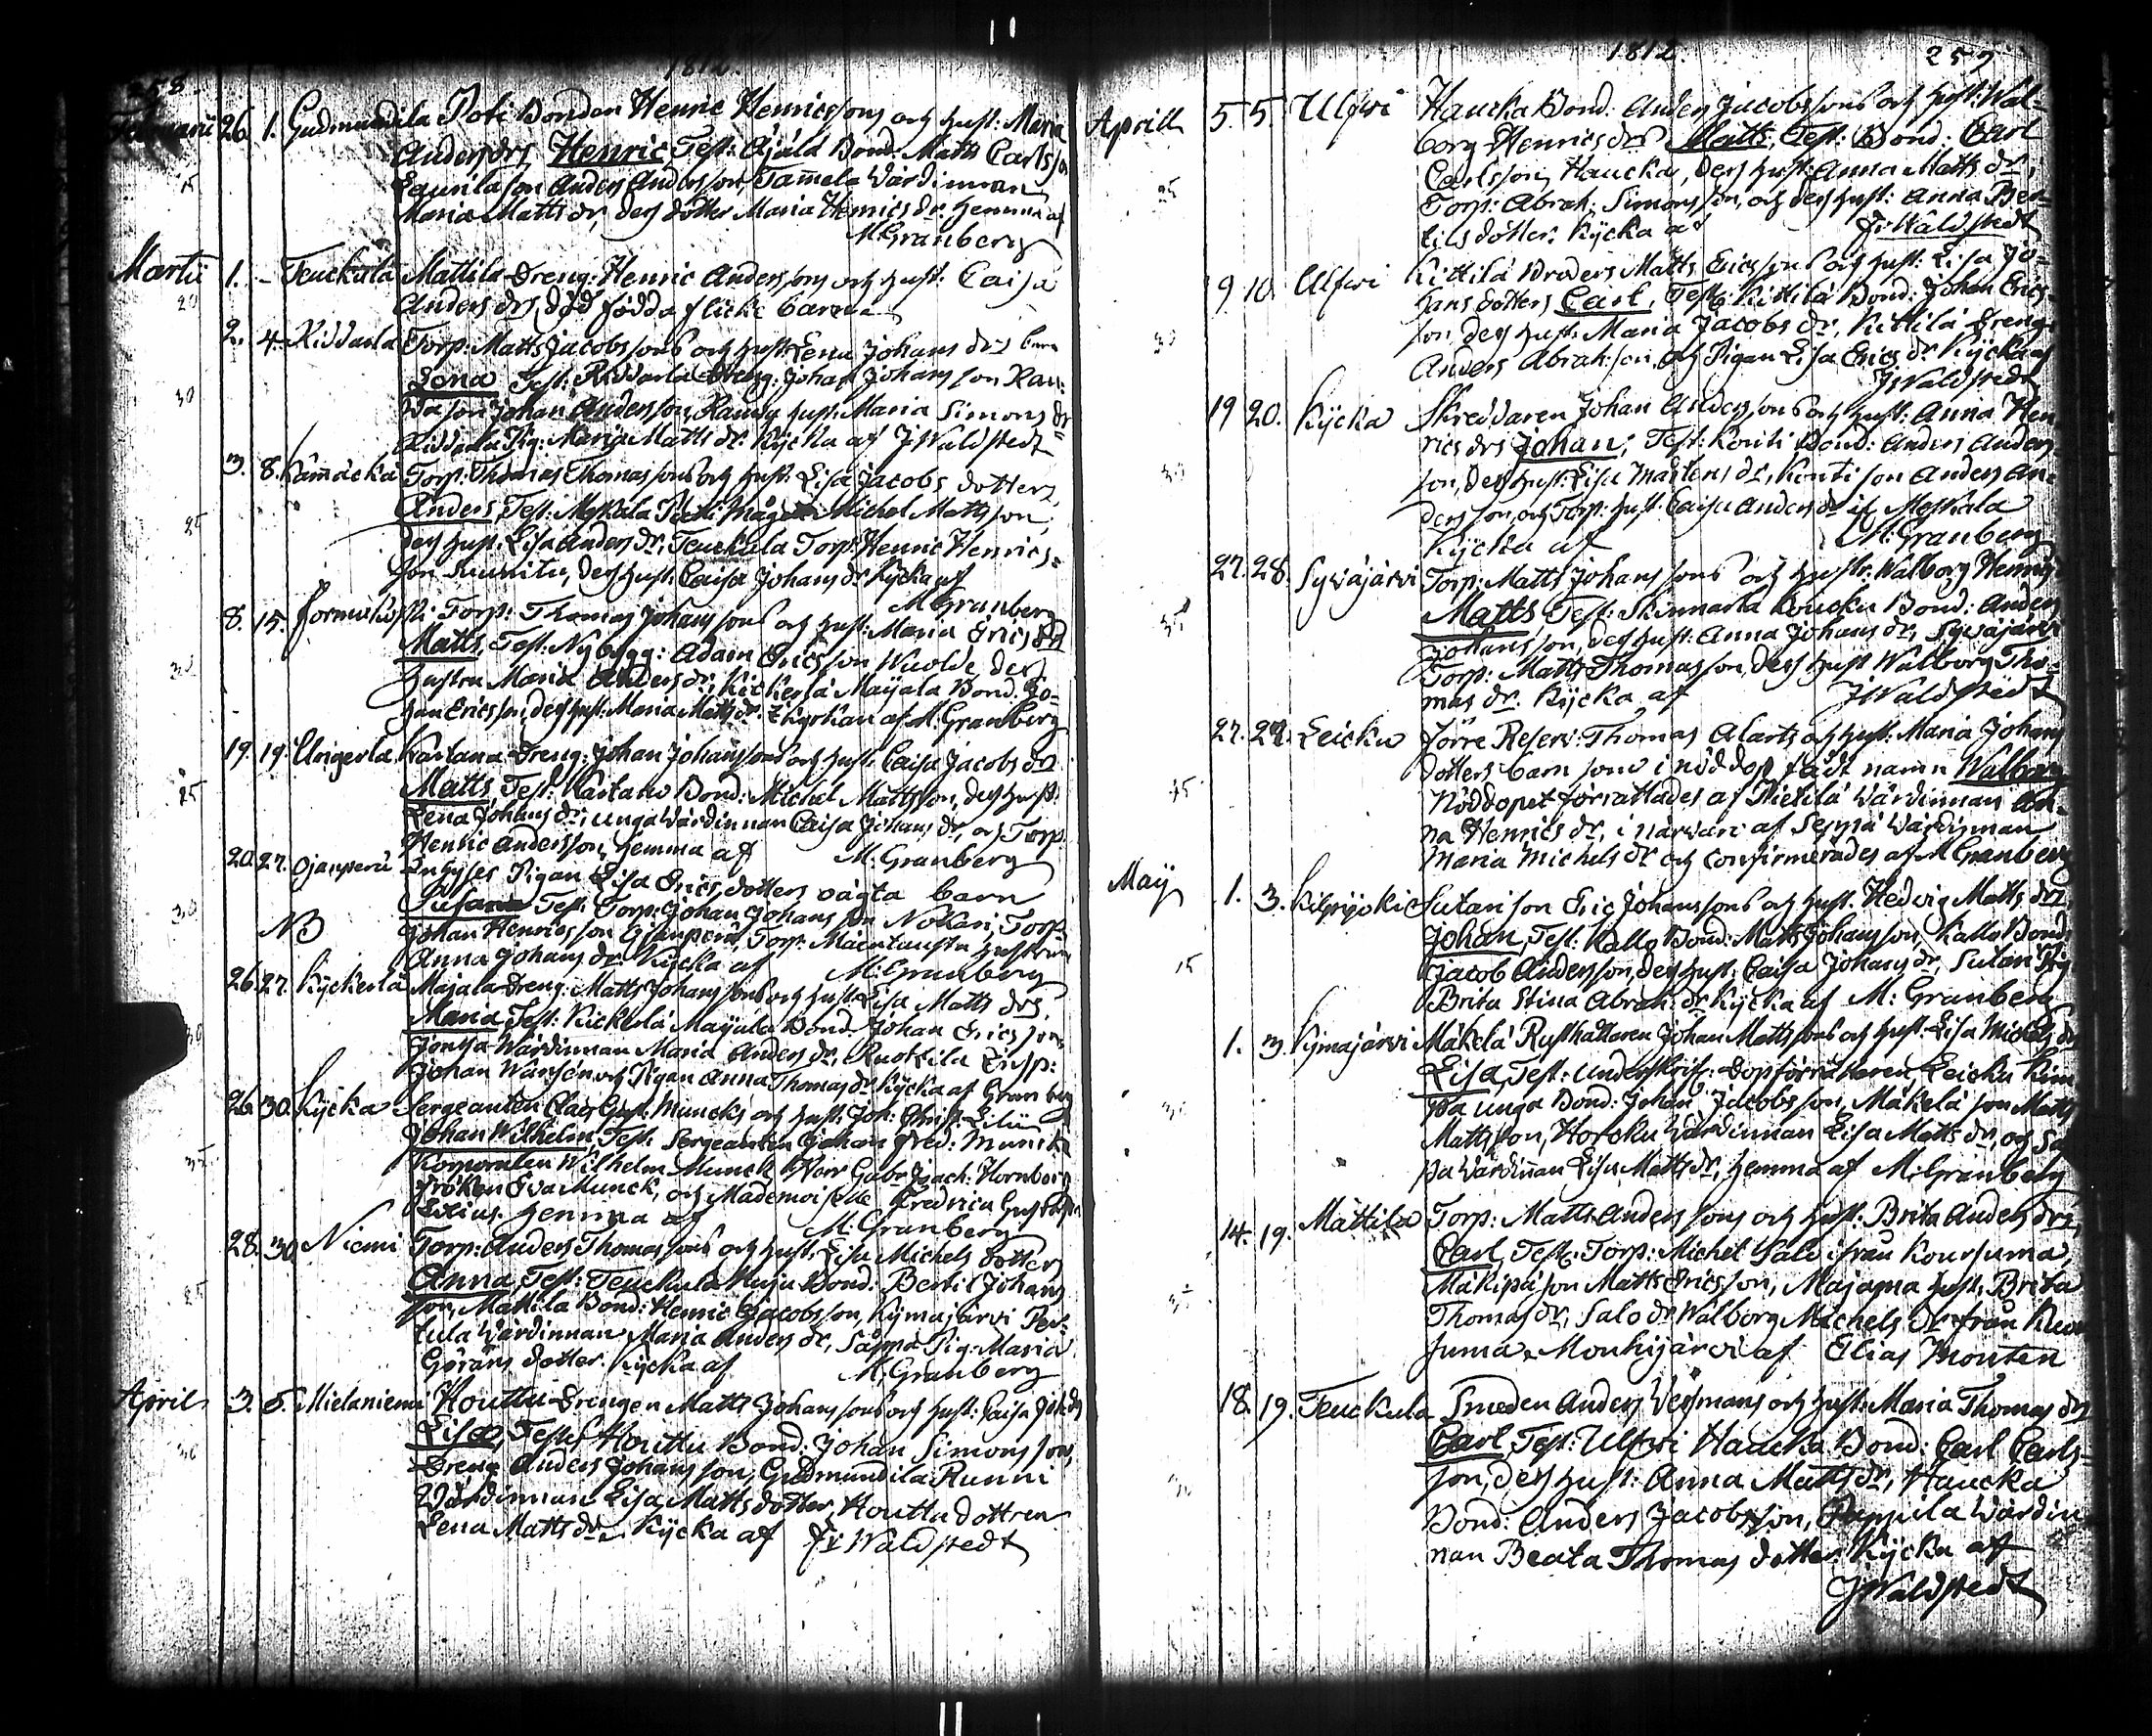 258
1812.
Februarii 26. 1. Gudmundila Poti Bonden Henric Henricssons och hust: Maria
Anders drs Henric, Test: Äjälä Bond: Matts Carlsson
Laurila son Anders Andersson, Tamela Wärdinnan
Maria Matts dr, des dotter Maria Henrics dr. hemma af
M: Granberg
15
Martii 1. - Teuckula Mattila Dreng: Henric Anders sons och hust: Caisa
20
Anders drs, död födda flicke barn
2. 4. Riddarla Torp: Matts Jacobs sons och hust: Lena Johans drs barn
Lena Test: Riddarla Dreng: Johan Johans son
30
son Johan Andersson, hust: Maria Simons dr
Riddarla Pig: Maria Matts dr. Kycka af J: Waldstedt
3. 8. Kämäckä Torp: Thomas Thomas sons och hust: Lisa Jacobs dotters
Anders, Test: Myskala Pietti Mågen Michel Mattsson,
25
des hust: Lisa Anders dr, Teuckula Torp: Henric Henrics-
son Suuniitu, des hust: Caisa Johans dr Kycka af
M: Granberg
8. 15. Formiskoski Torp: Thomas Johans sons och hust: Maria Erics drs
Matts, Test: Nybygg: Adam Ericsson Wuolde, des
30
hustru Maria Anders dr, Kickerlä Maijala Bond: Jo-
han Ericsson, des hust: Maria Matts dr. i Kyrkan af M: Granberg
19. 19. Ungerla Kartano Dreng: Johan Johanssons och hust: Caisa Jacobs drs
Matts Test: Kartano Bond: Michel Mattsson, des hust:
25
Lena Johans dr, unga Wärdinnan Caisa Johans dr, och Torp:
Henric Andersson, hemma af M: Granberg
20. 27. Ojanperä Inhyses Pigan Lisa Erics dotters oägta barn
30
Susanna Test: Torp: Johan Johans son Nokari, Torp:
NB Johan Henrics son Ojanperä, Torp: hustrun
Anna Johans dr. Kycka af M: Granberg
26. 27. Kyckerlä Majala Dreng: Matts Johans sons och hust: Lisa Matts drs,
Maria Test: Kickerlä Maijala Bond: Johan Ericsson,
30
Jontsa Wärdinnan Maria Anders dr, Ruottila
Johan och Pigan Anna Thomas dr Kycka af Granberg
26. 30. Kycka Sergeanten Claes Gust: Muncks och hust: Joh: Christ: Lilii
Johan Wilhelm, Test: Sergeanten Johan Fred: Munck
Korporalen Wilhelm Munck, Herr Gabr: Isach: Hornborg
35
fröken Eva Munck, och Mademoiselle Fredrica Gust:
Lilius. hemma af M: Granberg
28. 30. Niemi Torp: Anders Thomas sons och hust: Lisa Michels dotters
Anna, Test: Teuckula Bond: Bertil Johans
25
son, Mattila Bond: Henric Jacobsson, Kymajärvi Per-
tula Wärdinnan Maria Anders dr, Säppä Pig: Maria
Görans dotter. Kycka af M: Granberg
April 3. 5. Mielaniemi Houttu Drengen Matts Johans sons och hust: Caisa Joh: drs
Lisa, Test: Houttu Bond: Johan Simons son,
30
Dreng Anders Johans son, Gudmundila Runni
Wärdinnan Lisa Matts dotter, Houttu dottren
Lena Matts dr. Kycka af J: Waldstedt
1812.
259
Aprill 5. 5. Ulfwi Haucka Bond: Anders Jacobs sons och hust: Wal-
borg Henrics drs Matts, Test: Bond: Carl
Carlsson, Haucka, des hust: Anna Matts dr,
25
Torp: Abrah: Simons son, och des hust: Anna Ber-
tils dotter. Kycka af J: Waldstedt
9. 10. Ulfwi Kittilä Broders Matts Ericssons och hust: Lisa Jo-
hans dotters Carl, Test: Kittilä Bond: Johan Erics-
30
son, des hust: Maria Jacobs dr, Kittilä Dreng:
Anders Abrah: son, och Pigan Lisa Erics dr Kycka af
J: Waldstedt
19 20. Kycka Skreddaren Johan Anders sons och hust: Anna Hen-
rics drs Johan, Test: Kouti Bond: Anders Anders-
30
son, des hust: Lisa Martens dr, Kouti son Anders An-
ders son, och Torp: hust: Caisa Anders dr if. Myskala
Kycka af M: Granberg
27. 28. Sywäjärvi Torp: Matts Johans sons och hustr: Walborg Henrics
Matts Test: Skinnarla Koucku Bond: Anders
35
Johans son, des hust: Anna Johans dr, Sywäjärvi
Torp: Matts Thomas son, des hust Walborg Tho-
mas dr. Kycka af J: Waldstedt
27. 29. Leicku Förre Reserv: Thomas Alarts och hust: Maria Johans
dotters barn som i nöddop fådt namn Walborg
15
Nöddopet förrättades af Pietilä Wärdinnan An-
na Henrics dr, i närvaro af Seppä Wärdinnan
Maria Michels dr och confirmerades af M Granberg
Maij 1. 3. Kilpijoki Sutari son Eric Johanssons och hust: Hedvig Matts drs,
Johan, Test: Kallo Bond: Matts Johans son, Kallo Bond:
15
Jacob Andersson, des hust: Caisa Johans dr, Sutari Pig:
Brita Stina Abrah: dr Kycka af M: Granberg
1. 3. Kymajärvi Mäkelä Rusthållaren Johan Matts sons och hust: Lisa Michels drs
Lisa, Test: Underskrifv: dopförrättaren, Leicku
30
unga Bond: Johan Jacobs son, Mäkelä son Matts
Mattsson, Horcku Wärdinnan Lisa Matts dr, och
Wärdinnan Lisa Matts dr, hemma af M: Granberg
14. 19. Mattila Torp: Matts Anders sons och hust: Brita Anders drs,
Carl, Test: Torp: Michel Salo ifrån Kourjuma,
35
Mäkipä son Matts Ericsson, Majagna hust: Brita
Thomas dr, Salo dr Walborg Michels dr från
Juma. Mouhijärvi af Elias Monten
18. 19. Teuckula Smeden Anders Wesmans och hust: Maria Thomas drs
Carl, Test: Ulfwi Haucka Bond: Carl Carls-
son, des hust: Anna Matts dr, Haucka
30
Bond: Anders Jacobsson, Peppila Wärdin-
nan Beata Thomas dotter. Kycka af
J Waldstedt